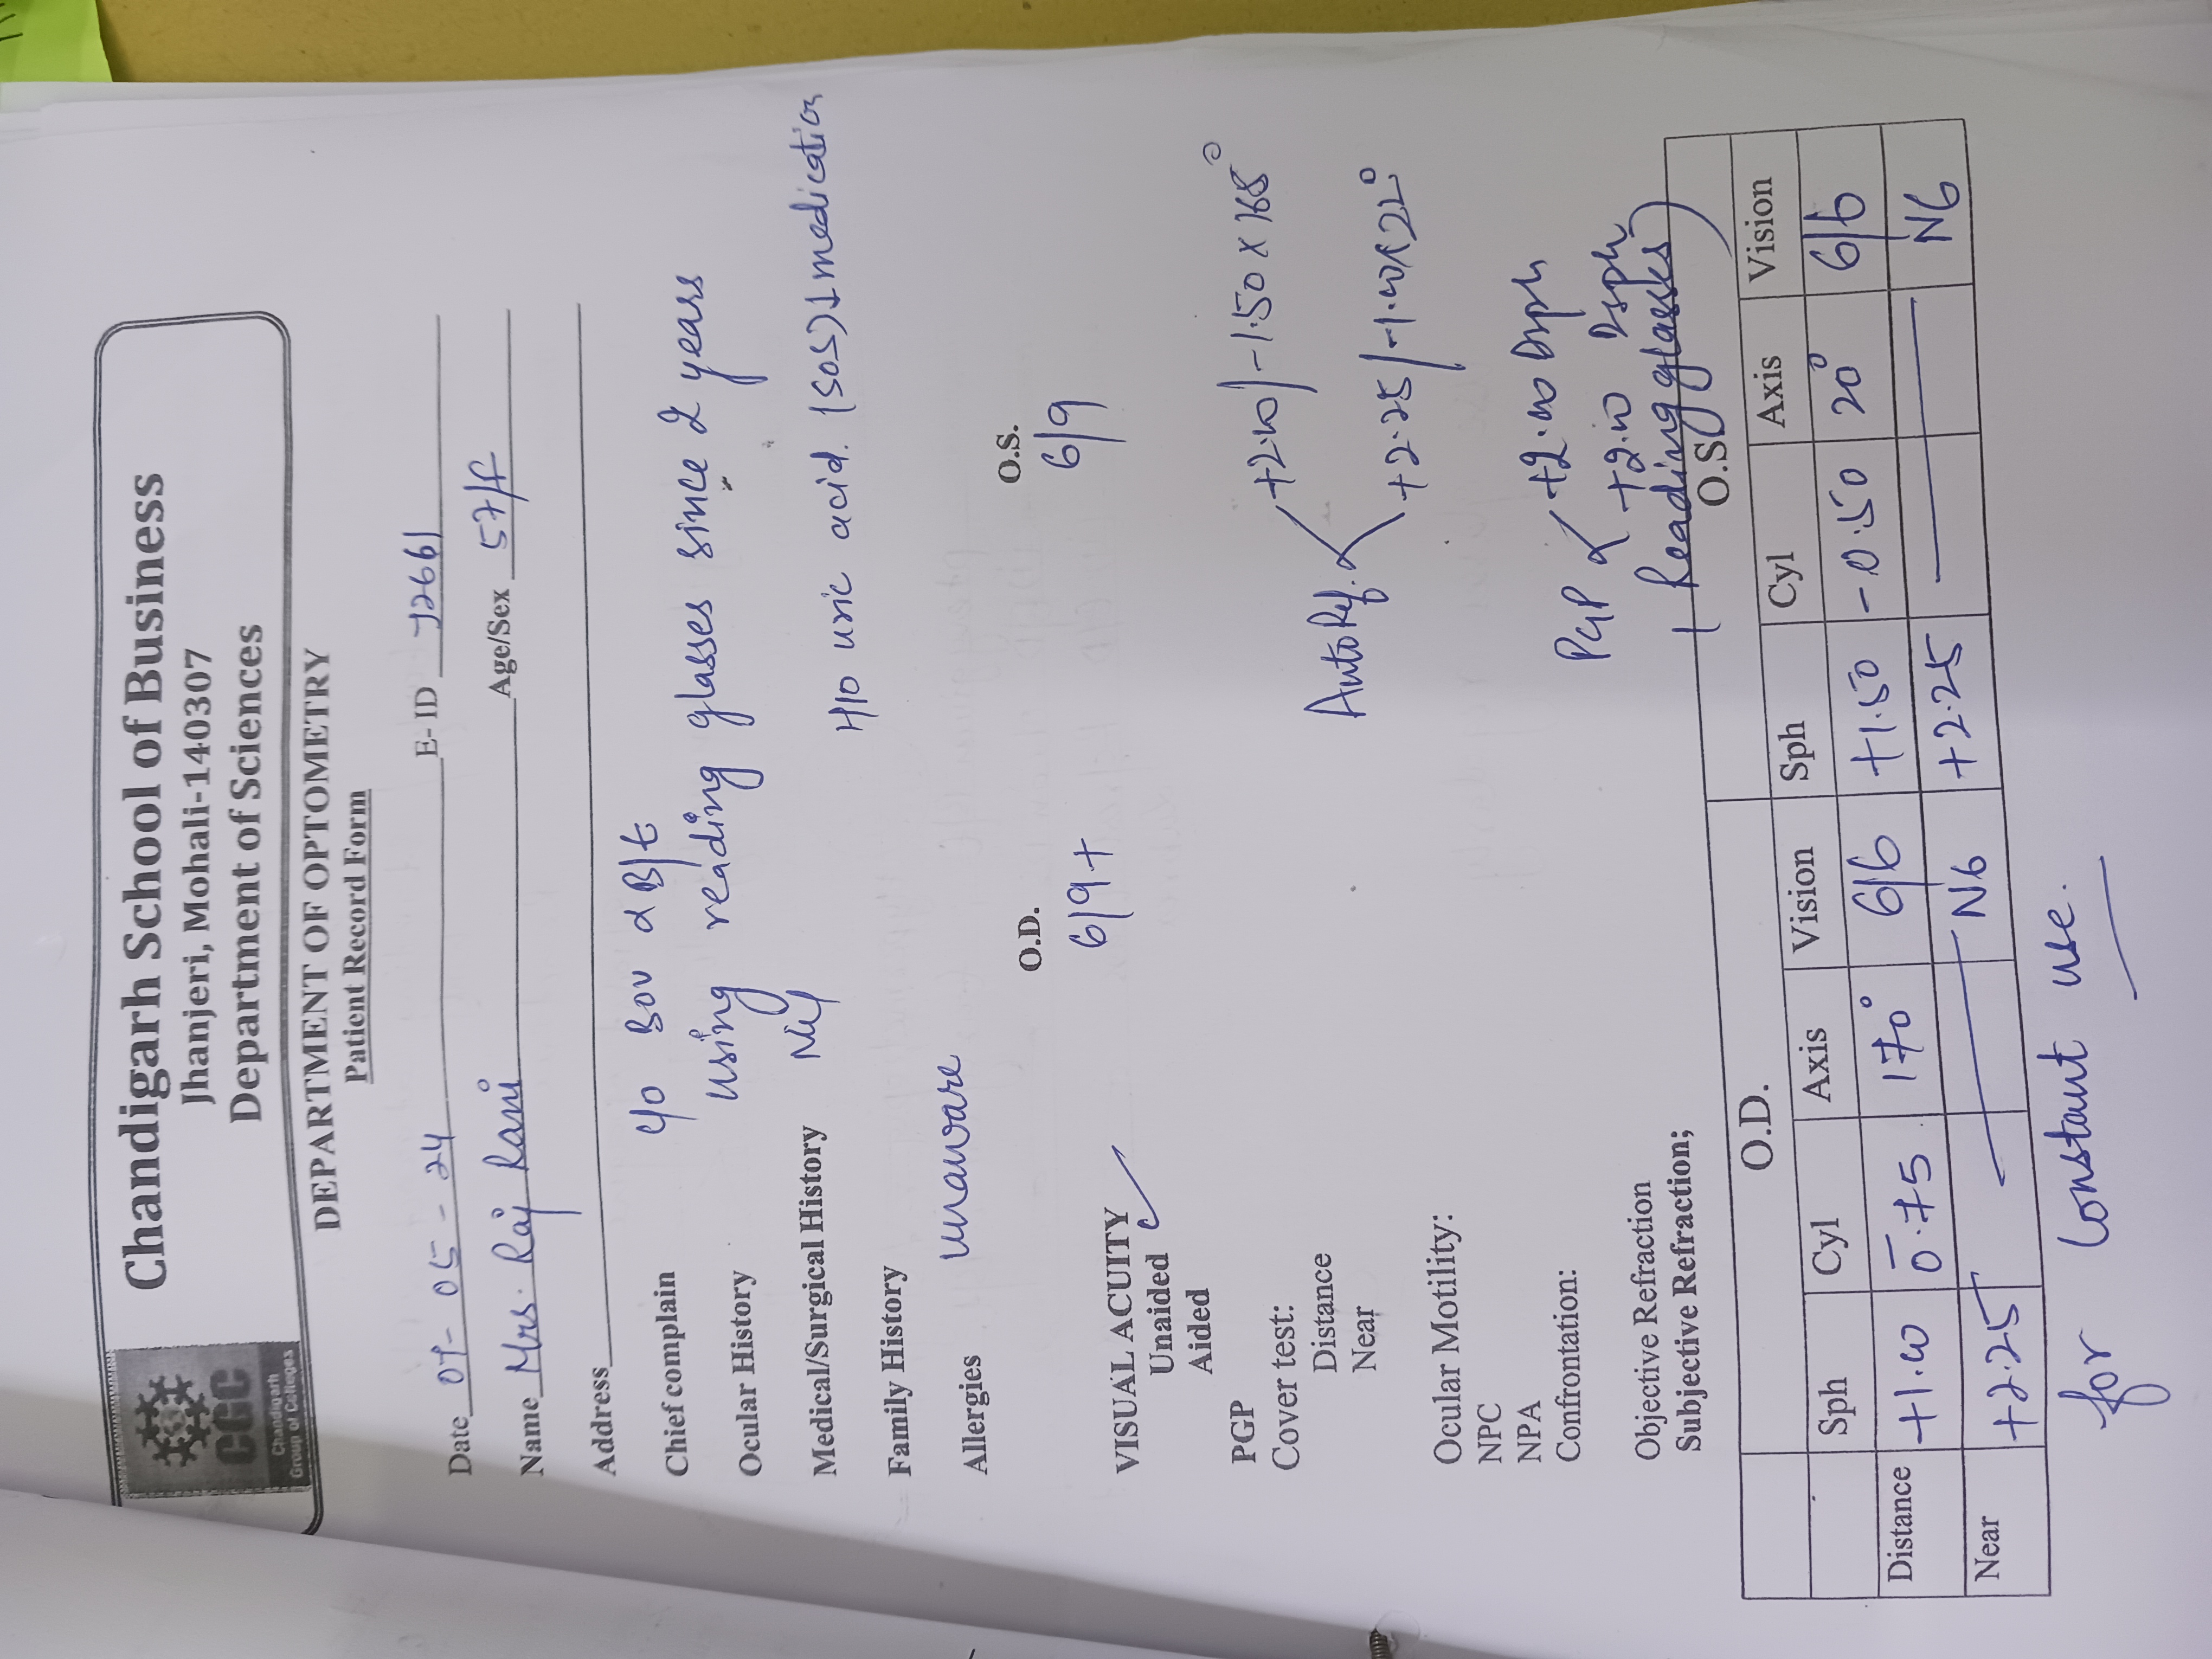 CGC
Chandigarh
Group of Colleges
Chandigarh School of Business
Jhanjeri, Mohali-140307
Department of Sciences
DEPARTMENT OF OPTOMETRY
Patient Record Form
Date 07-05-24 E-ID J2661
Name Mrs. Raj Rani Age/Sex 57/F
Address
Chief complain c/o BOV d B/E
Ocular History using reading glasses since 2 years
Medical/Surgical History Nil
H/O uric acid. (SOS) medication
Family History
Allergies unaware
O.D. O.S.
6/9+ 6/9
VISUAL ACUITY
Unaided ✓
Aided
PGP
Cover test:
Distance
Near
AutoRef. +2.00/-1.50 x 168°
+2.25/-1.00x22°
Ocular Motility:
NPC
NPA
Confrontation:
PGP +2.00 Dsph
+2.00 Dsph
(Reading glasses)
Objective Refraction
Subjective Refraction;
O.D. O.S
Sph Cyl Axis Vision Sph Cyl Axis Vision
Distance +1.00 -0.75 170° 6/6 +1.50 -0.50 20° 6/6
Near +2.25 — N6 +2.25 — N6
for constant use.